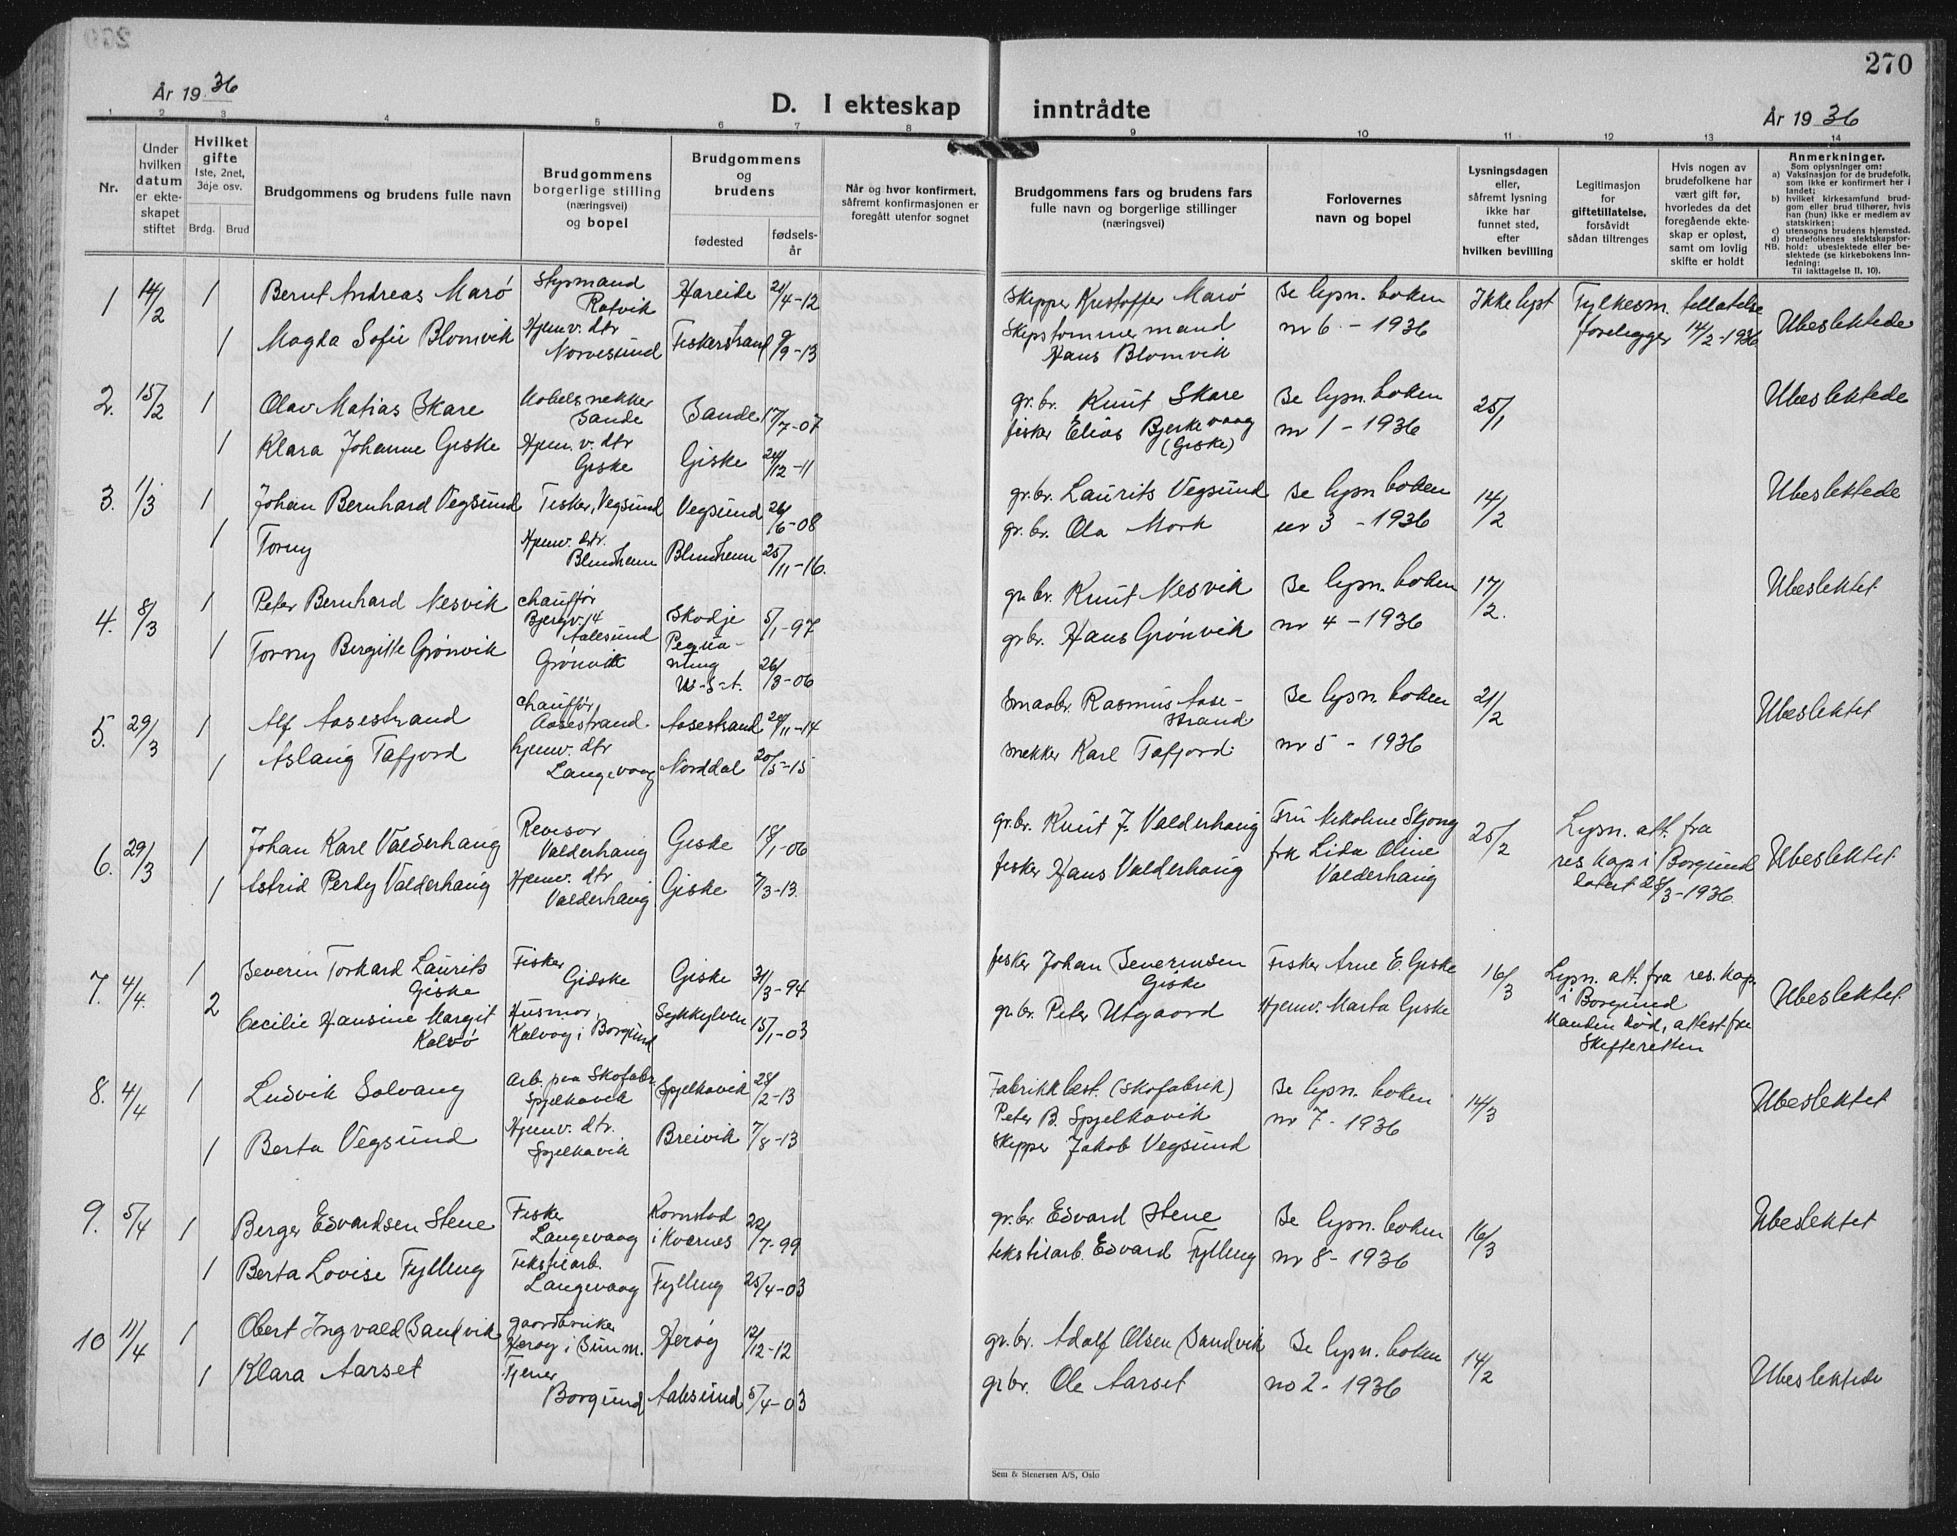 270
År 1936
D. I ekteskap inntrådte
År 1936
1 2 3 4 5 6 7 8 9 10 11 12 13 14
Nr.
Under hvilken datum er ekteskapet stiftet
Hvilket gifte
1ste, 2net, 3dje osv.
Brdg. Brud
Brudgommens og brudens fulle navn
Brudgommens borgerlige stilling (næringsvei) og bopel
Brudgommens og brudens
fødested
fødselsår
Når og hvor konfirmert, såfremt konfirmasjonen er foregått utenfor sognet
Brudgommens fars og brudens fars
fulle navn og borgerlige stillinger
(næringsvei)
Forlovernes navn og bopel
Lysningsdagen eller, såfremt lysning ikke har funnet sted, efter hvilken bevilling
Legitimasjon for giftetillatelse, forsåvidt sådan tiltrenges
Hvis nogen av brudefolkene har vært gift før, hvorledes da det foregående ekteskap er opløst, samt om lovlig skifte er holdt
Anmerkninger.
Som oplysninger om:
a) Vaksinasjon for de brudefolk, som ikke er konfirmert her i landet;
b) hvilket kirkesamfund brudgom eller brud tilhører, hvis han (hun) ikke er medlem av statskirken;
c) utensogns brudens hjemsted.
d) brudefolkenes slektskapsforhold: ubeslektede eller beslektede (se kirkebokens innledning:
NB.
Til iakttagelse II, 10).
1 14/2 1 Bernt Andreas Marø Styrmand Ratvik Hareide 21/4-12 Skipper Kristoffer Marø Se lysn. boken Ikke lyst Fylkesm. tillatelse
1 Magda Sofie Blomvik Hjemv. dtr Norvesund Fiskerstrand 9/9-13 Skipstømmermand Hans Blomvik nr 6 - 1936 foreligger 14/2-1936 Ubeslektede
2. 15/2 1 Olav Matias Skare Møbelsnekker Sande Sande 17/7-07 gr. br. Knut Skare Se lysn. boken 25/1 Ubeslektede
1 Klara Johanne Giske Hjem. v. dtr Giske Giske 24/12-11 fisker Elias Bjerkevaag (Giske) nr 1 - 1936
3. 1/3 1 Johan Bernhard Vegsund Fisker, Vegsund Vegsund 26/6-08 gr. br. Laurits Vegsund Se lysn boken 14/2 Ubeslektede
1 Torny Hjemv. dtr. Blindheim Blindheim 25/11-16. gr. br. Ola Mork nr 3 - 1936
4. 8/3 1 Peter Bernhard Nesvik chauffør Bjergv. 14 Aalesund Skodje 5/1-97 gr. br. Knut Nesvik Se lysn. boken 17/2. Ubeslektet
1 Torny Bergitte Grønvik Grønvik Pequaming U-S-A. 26/3-06 gr br. Hans Grønvik nr 4 - 1936
5. 29/3 1 Alf Aasestrand chauffør Aasestrand. Aasestrand 20/11-14 Smaabr Rasmus Aasestrand Se lysn. boken 21/2 Ubeslektet
1 Aslaug Tafjord hjemv. dtr Langevaag Norddal 20/5-15 snekker Karl Tafjord. nr 5 - 1936
6. 29/3 1 Johan Karl Valderhaug Revisor Valderhaug Giske 18/1-06 gr. br. Knut J. Valderhaug Fru Nikoline Skjong 25/2 Lysn. att. fra
1 Astrid Perdy Valderhaug Hjemv. dtr Valderhaug Giske 7/3-13. fisker Hans Valderhaug frk Lida Oline Valderhaug res kap i Borgund datert 28/3-1936 Ubeslektet
7. 4/4. 1 Severin Torkard Laurits Giske Fisker Gidske Giske 31/3-94 fisker Johan Severinsen Giske Fisker Arne E. Giske 16/3 Lysn. att. fra res. kap. i Borgund Ubeslektet
2 Cecilie Hansine Margit Kalvø Husmor, Kalvøg i Borgund Sykkylven 15/1-03 gr. br. Peter Utgaard Hjemv. Marta Giske Manden død, attest fra Skifteretten
8. 4/4 1 Ludvik Solvang Arb. paa Skofabr Spjelkavik Spjelkavik 28/2-13 Fabrikkbest. (skofabrik) Peter B. Spjelkavik Se lysn. boken 14/3 Ubeslektet
1 Berta Vegsund Hjemv. dtr. Spjelkavik Breivik 7/8-13 Skipper Jakob Vegsund nr 7 - 1936
9. 5/4 1 Berger Edvardsen Stene Fisker Langevaag Kornstad i Kvernes 22/7-99 gr. br. Edvard Stene Se lysn. boken 16/3 Ubeslektet
1 Berta Lovise Fylling Tekstilarb. Langevaag Fylling 25/4-03 tekstilarb. Edvard Fylling nr 8 - 1936
10 11/4 1 Obert Ingvald Sandvik gaardbruker Herøy i Sunm. Herøy 12/12-12 gr. br. Adolf Olsen Sandvik Se lysn. boken 14/2 Ubeslektede
1 Klara Aarset Tjener Borgund Aalesund 5/4-03 gr br. Ole Aarset no 2 - 1936
Sem & Stenersen A/S, Oslo